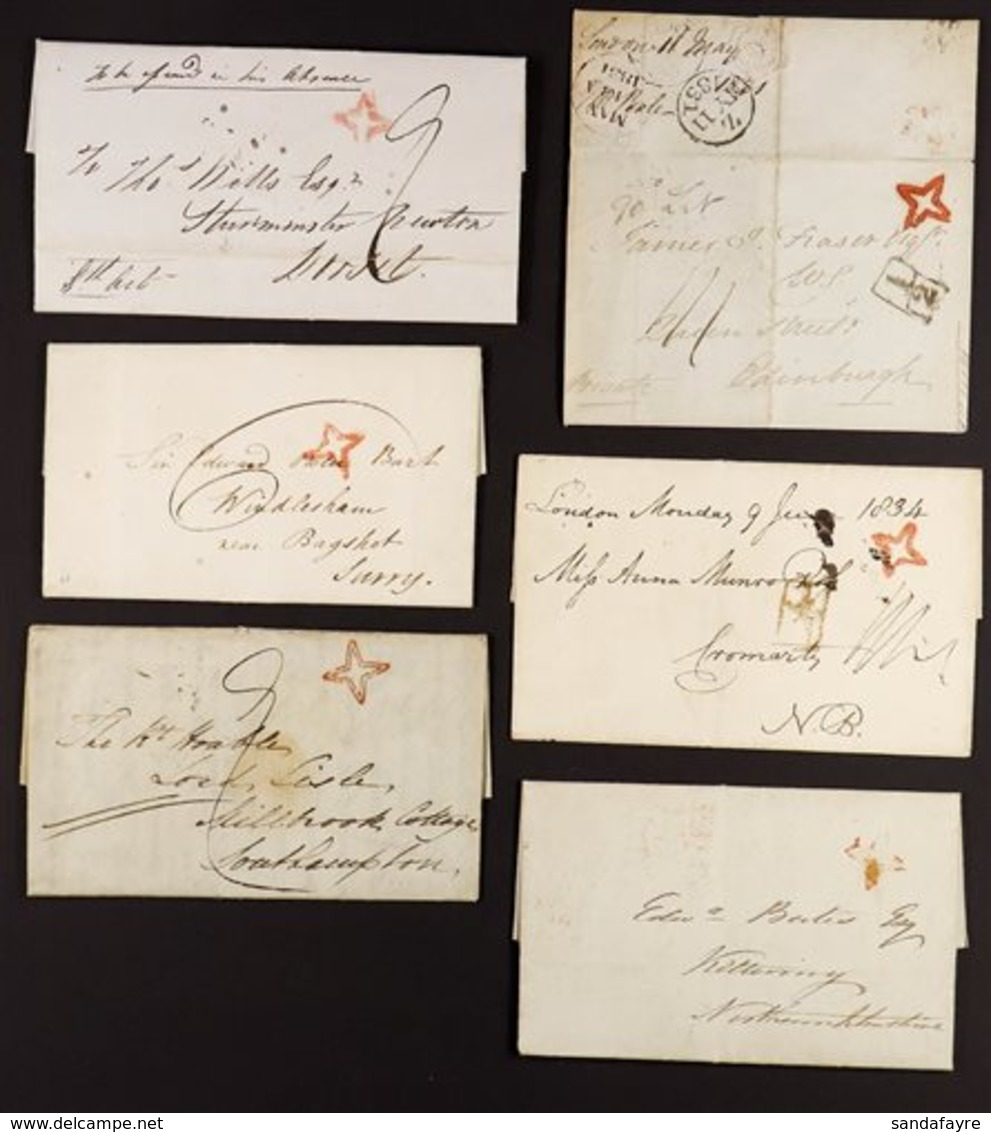 To be opened in his Absence
To Thos Wills Esqr
Sturminster Newton
Dorset.
8th Oct
London 11 May
MY 11
1831
James J. Fraser Esqr.
W.S.
Queen Street
Edinburgh
Private
1/2
Sir Edward Bart
Windlesham
near Bagshot
Surry.
London Monday 9 June 1834
Miss Anna Munro
Cromarty
N.B.
The Rt Honble
Lord Lisle,
Millbrook Cottage
Southampton,
Edwd Esq
Kettering
Northamptonshire
sandafayre